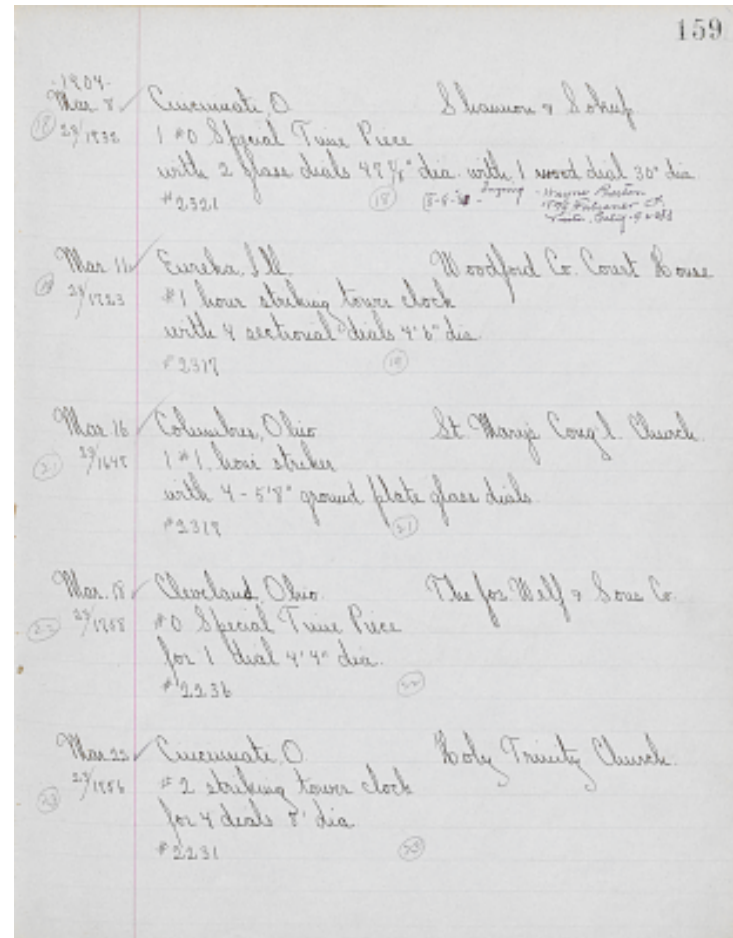 159
1904.
Mar. 8 ✓ Cincinnati, O. Shannon &
(18) 29/1832 1 #0 Special Time Piece
with 2 glass dials 47⅞" dia. with 1 wood dial 30" dia.
#2321 (18) Inquiry - Wayne
Mar. 11 ✓ Eureka, Ill. Woodford Co. Court House
29/1723 #1 hour striking tower clock
with 4 sectional dials 4'6" dia.
#2317 (19)
Mar. 16 ✓ Columbus, Ohio St. Mary's Cong'l. Church.
29/1648 1 #1. hour striker
with 4 - 5'8" ground plate glass dials
#2319 (21)
Mar. 18 ✓ Cleveland, Ohio. The Jos Welf & Sons Co.
(22) #0 Special Time Piece
for 1 dial 4'4" dia.
#2236 (22)
Mar 22 ✓ Cincinnati, O. Holy Trinity Church.
(23) 29/1856 #2 striking tower clock
for 4 dials 8' dia
#2231 (23)